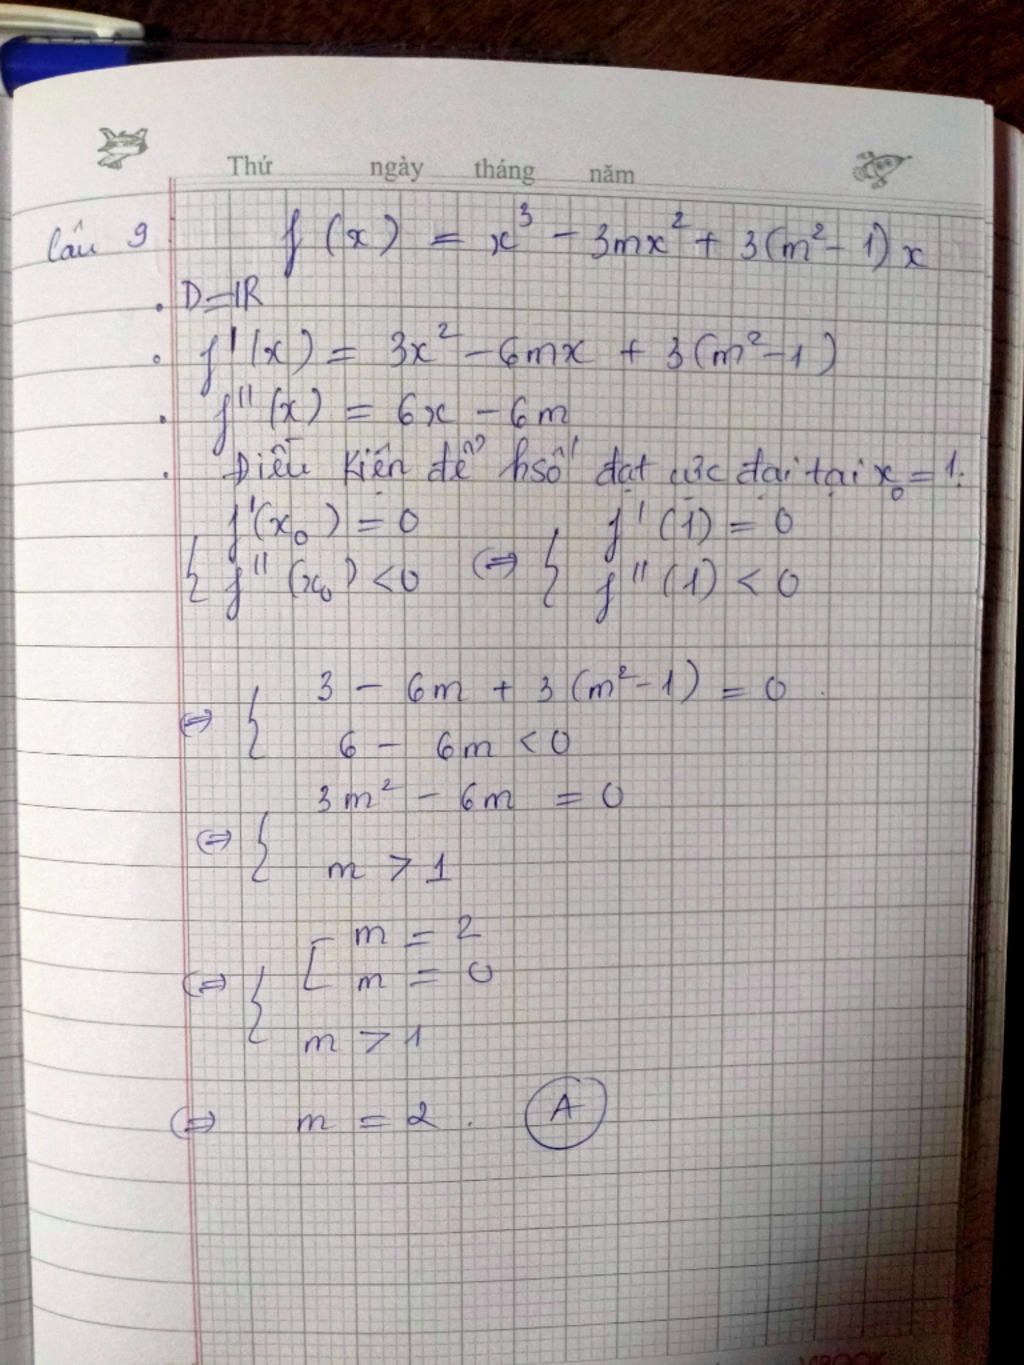 Thứ ngày tháng năm
Câu 9 f(x) = x³ - 3mx² + 3(m² - 1)x
. D = IR
. f'(x) = 3x² - 6mx + 3(m² - 1)
. f''(x) = 6x - 6m
. Điều kiện để hsố đạt cực đại tại x₀ = 1:
{ f'(x₀) = 0 ⇔ { f'(1) = 0
f''(x₀) < 0 f''(1) < 0
⇔ { 3 - 6m + 3(m² - 1) = 0
6 - 6m < 0
⇔ { 3m² - 6m = 0
m > 1
⇔ { [ m = 2
m = 0
m > 1
⇔ m = 2. A